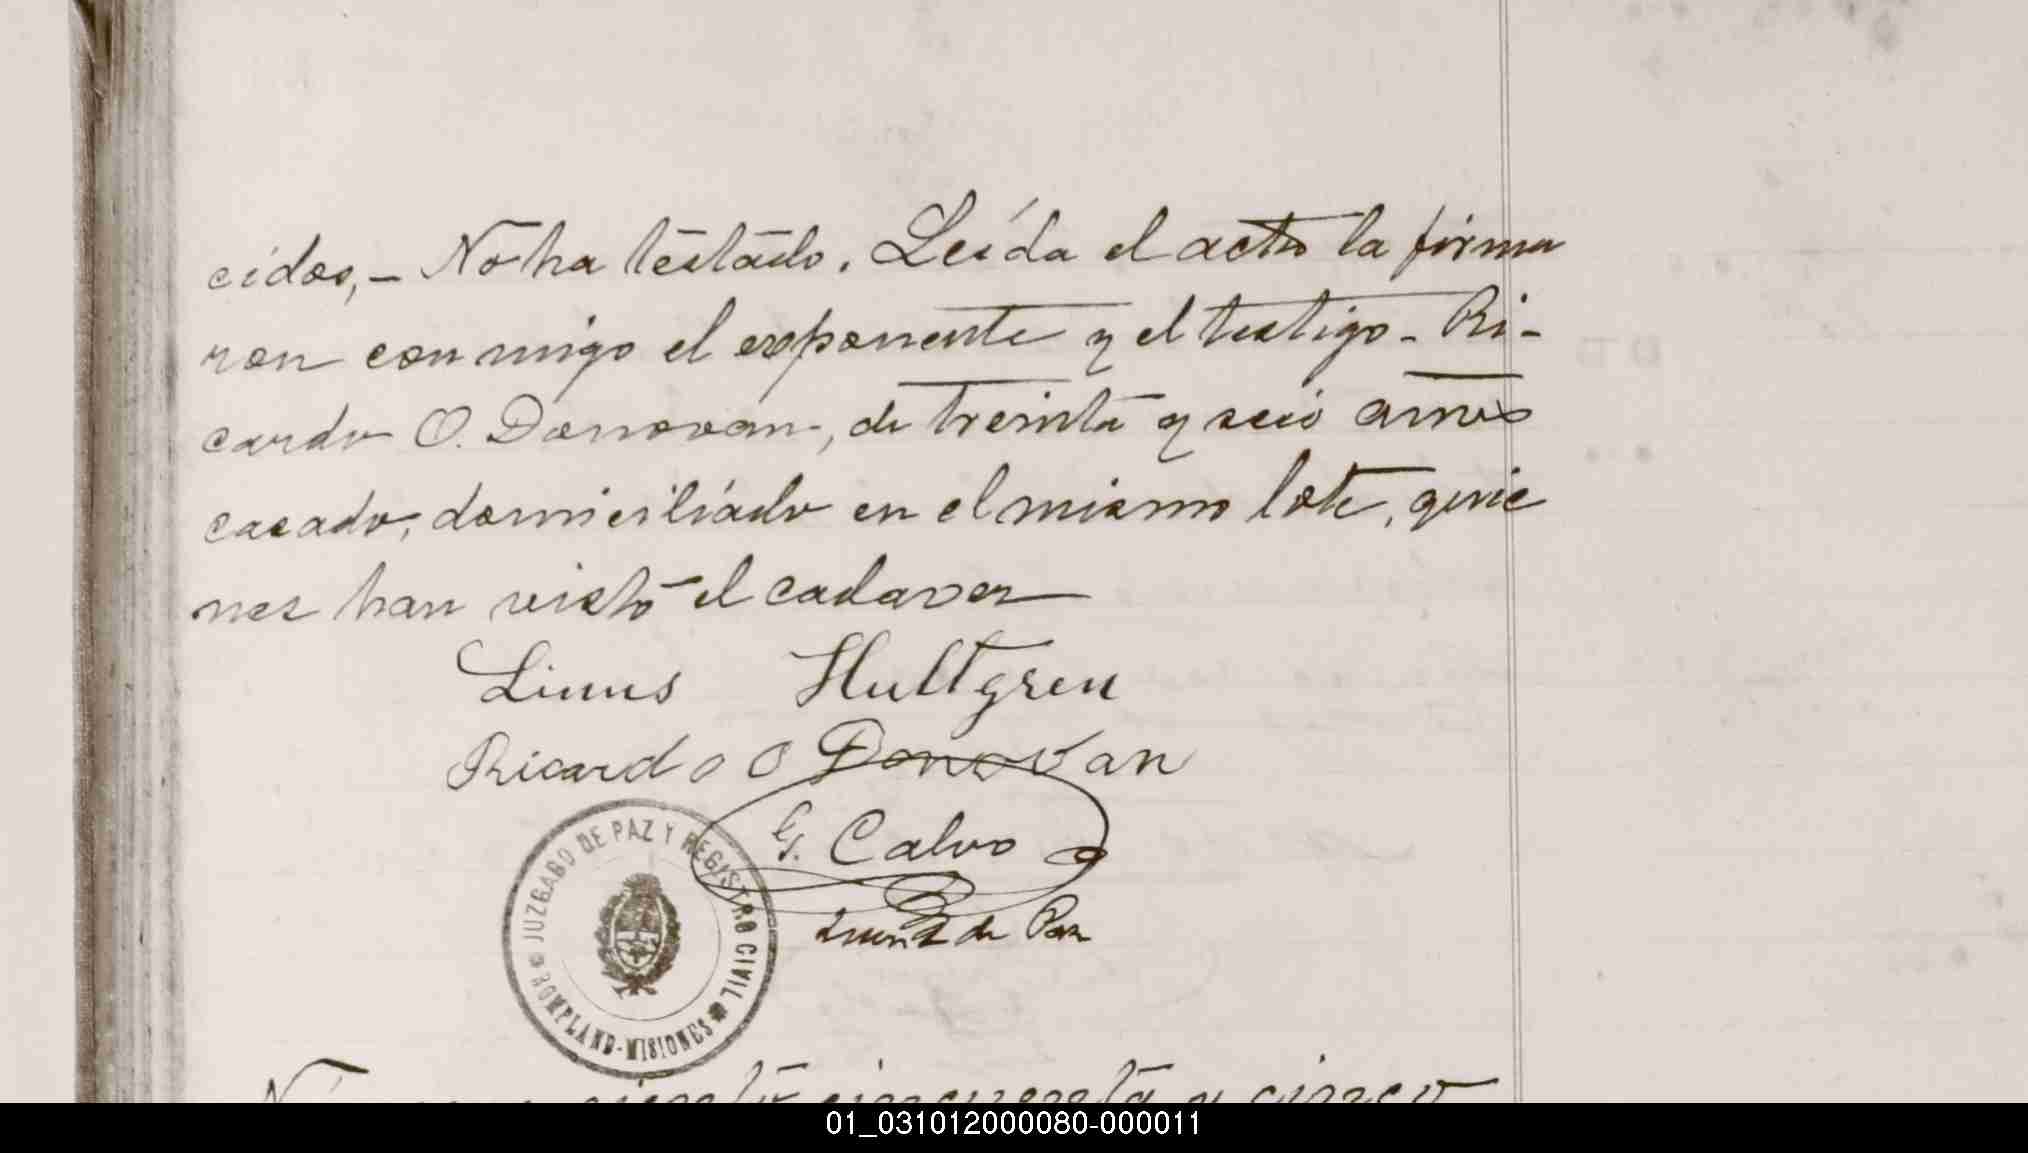 cidos,- No ha testado. Leída el acta la firma
ron conmigo el exponente y el testigo - Ri-
cardo O. Donovan, de treinta y seis años
casado, domiciliado en el mismo lote, quie
nes han visto el cadaver
Linus Hultgren
Ricardo O Donovan
G. Calvo
Juez de Paz
JUZGADO DE PAZ Y REGISTRO CIVIL
BOMPLAND-MISIONES
ciento cincuenta y cinco
01_031012000080-000011